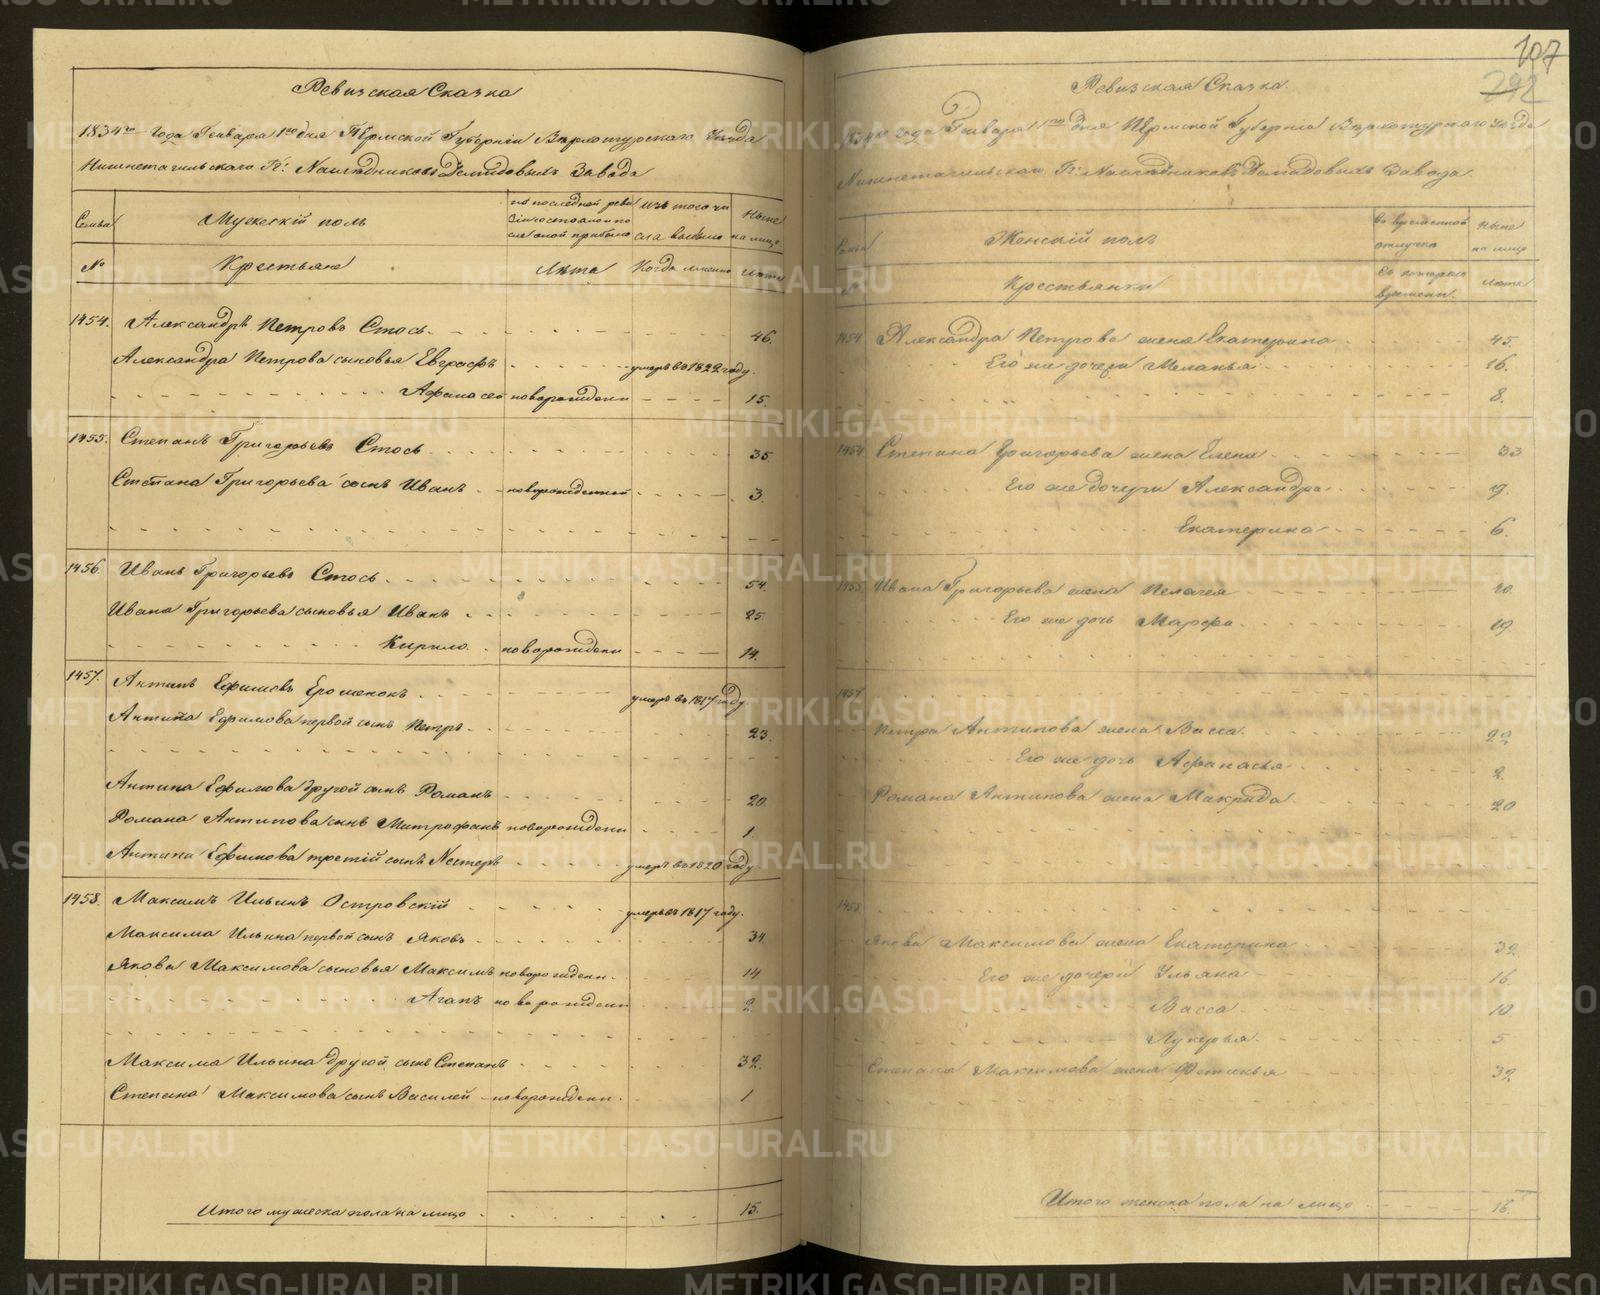 107
292
Ревизская Сказка
1834го Года Генваря 1го дня Пермской Губернии Верхотурского Уезда
Нижнетагильскаго Гг: Наследниковъ Демидовыхъ Завода
Семьа
Мужескій полъ
Изъ того чи
сла выбыло
Ныне
на лицо
№
Крестьяне
Лѣта
Когда имянно
Лѣта
1454. Александръ Петровъ Стось 46.
Александра Петрова сыновья Евграфъ умеръ въ 1822 году.
Афанасей новорожденн 15.
1455. Степанъ Григорьевъ Стось 35
Степана Григорьева сынъ Иванъ новорожденной 3.
1456. Иванъ Григорьевъ Стось 54.
Ивана Григорьева сыновья Иванъ 25.
Кирило новорожденн 14.
1457. Антипъ Ефимовъ Ерошенокъ умеръ въ 1817 году.
Антипа Ефимова первой сынъ Петръ 23.
Антипа Ефимова другой сынъ Романъ 20.
Романа Антипова сынъ Митрофанъ новорожденн 1
Антипа Ефимова третій сынъ Нестеръ умеръ въ 1820 году.
1458. Максимъ Ильинъ Островскій умеръ въ 1817 году.
Максима Ильина первой сынъ Яковъ 34.
Якова Максимова сыновья Максимъ новорожденн. 14
Агапъ новорожденн 2
Максима Ильина другой сынъ Степанъ 32.
Степана Максимова сынъ Василей новорожденн. 1
Итого мужеска пола на лицо 15.
Ревизская Сказка.
1834го года Генваря 1го дня Пермской Губерніи Верхотурскаго Уезда
Нижнетагильскаго Гг: Наследниковъ Демидовыхъ Завода.
Семьа
Женскій полъ
Во временной
отлучке
Ныне
на лицо
Крестьянки
Съ котораго
времени.
Лѣта
1454 Александра Петрова жена Екатерина 45.
Его же дочери Меланья 16.
8.
1454 Степана Григорьева жена Елена 33
Его же дочери Александра 19.
Екатерина 6.
1455 Ивана Григорьева жена Пелагея
Его же дочь Марфа 19.
1457
Петра Антипова жена Васса 22
Его же дочь Афанасья 2.
Романа Антипова жена Макрида 20
1458
Якова Максимова жена Екатерина 32
Его же дочери Ульяна 16.
Васса 10
Лукерья 5
Степана Максимова жена Фетинья 32
Итого женска пола на лицо 16.
METRIKI.GASO-URAL.RU